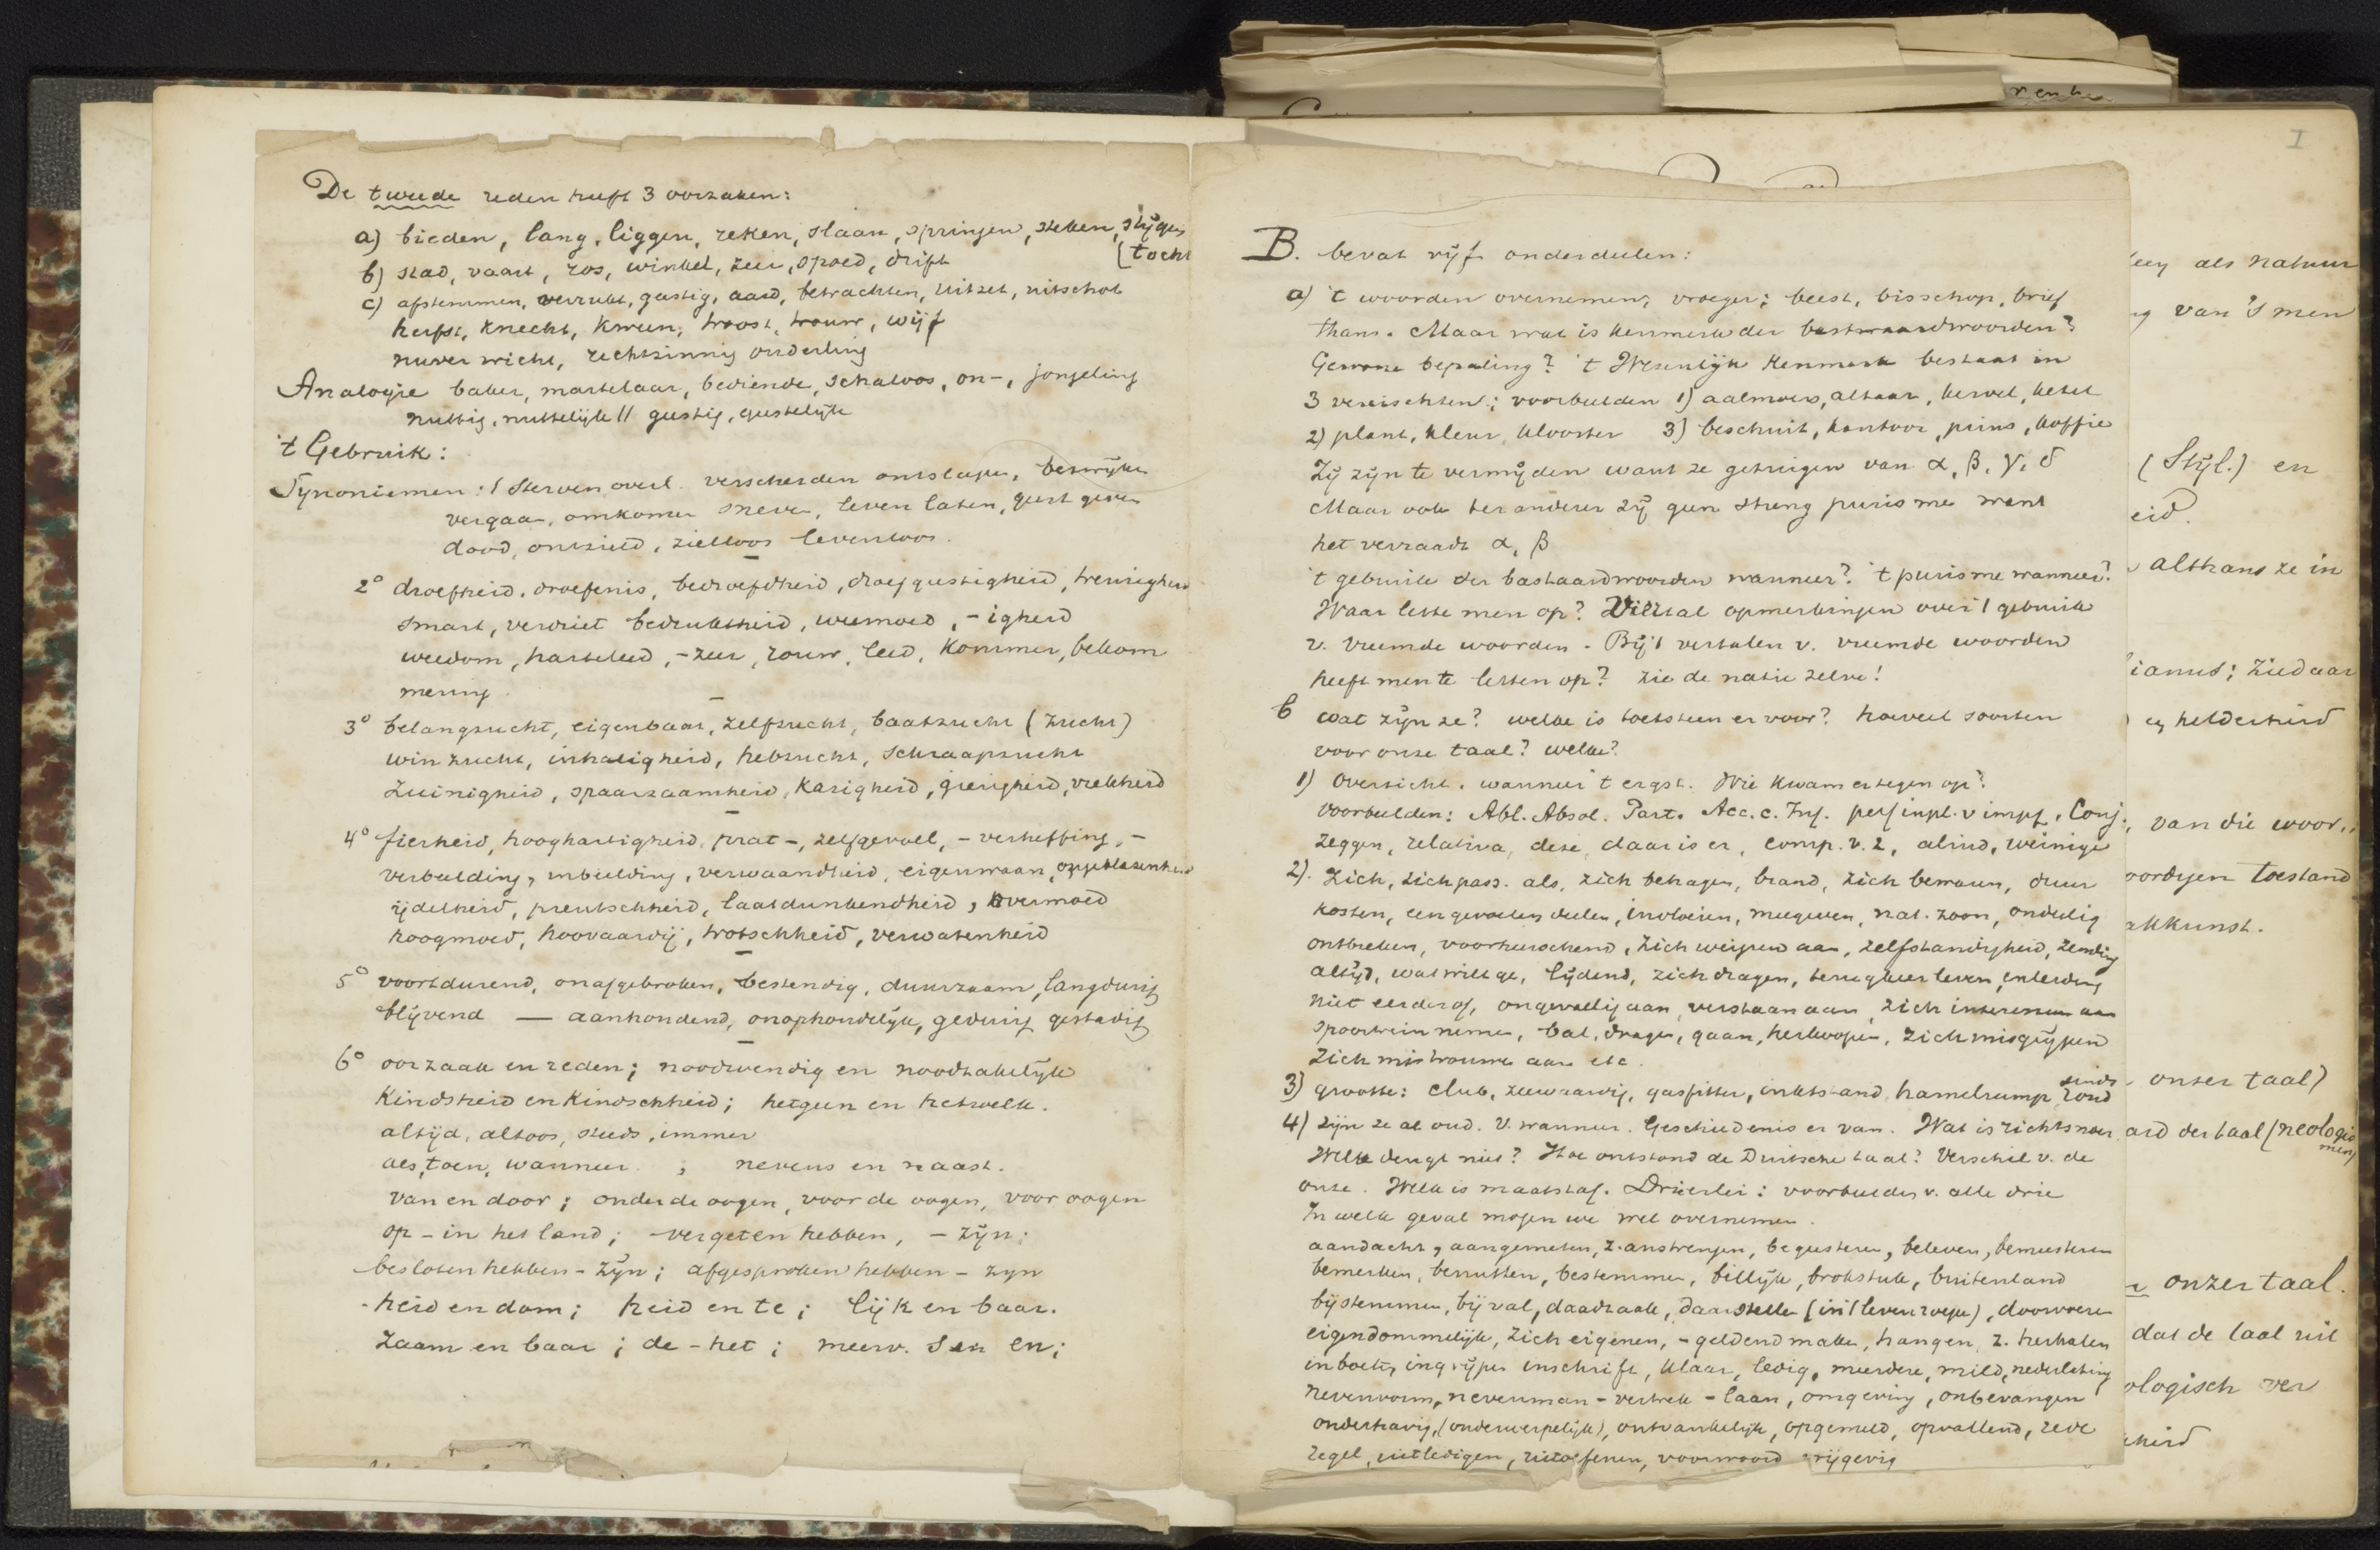 De tweede reden heeft 3 oorzaken:
a) bieden, lang, liggen, reken, slaan, springen, steken, stijgen
[tocht
b) stad, vaart, ros, winkel, zeer, spoed, drift
c) afstemmen, verrukt, geestig, aard, betrachten, uitzet, uitschot
herfst, knecht, kween, troost, trouw, wijf
nuver wicht, rechtzinnig onderling
Analogie baker, martelaar, bediende, schaloos, on-, jongeling
nuttig, nuttelijk // geestig, geestelijk
't Gebruik:
Synoniemen: 1 Sterven overl. verscheiden ontslapen, bezwijken
vergaan, omkomen sneven, leven laten, geest geven
dood, ontzield, zielloos levenloos.
2° droefheid, droefenis, bedroefdheid, droefgeestigheid, treurigheid
smart, verdriet bedruktheid, weemoed, -igheid
weedom,harteleed, -zeer, rouw, leed, kommer, bekom
mering
3° belangzucht, eigenbaat, zelfzucht, baatzucht (zucht)
winzucht, inhaligheid, hebzucht, schraapzucht
Zuinigheid, spaarzaamheid, karigheid, gierigheid, vrekheid
4° fierheid, hooghartigheid, prat-, zelfgevoel, -verheffing, -
verbeelding, inbeelding, verwaandheid, eigenwaan, opgeblazenheid
ijdelheid, preutschheid, laatdunkendheid, overmoed
hoogmoed, hoovaardij, trotschheid, verwatenheid
5° voortdurend, onafgebroken, bestendig, duurzaam, langdurig
blijvend — aanhoudend, onophoudelijk, gedurig gestadig
6° oorzaak en reden; noodwendig en noodzakelijk
Kindsheid en Kindschheid; hetgeen en hetwelk.
altijd, altoos, steeds, immer
als, toen, wanneer. ; nevens en naast.
van en door; onder de oogen, voor de oogen, voor oogen
op - in het land; vergeten hebben, - zijn;
besloten hebben - zijn; afgesproken hebben - zijn
-heid en dom; heid en te; lijk en baar.
zaam en baar; de - het; meerv. s en en;
I
B. bevat vijf onderdeelen:
a) 't woorden overnemen; vroeger; beest, bisschop, brief
thans. Maar wat is kenmerk der bastaardwoorden?
Gewone bepaling? 't Wezenlijk kenmerk bestaat in
3 vereischten; voorbeelden 1) aalmoes, altaar, kervel, ketel
2) plant, kleur, klooster 3) beschuit, kantoor, prins, koffie
Zij zijn te vermijden want ze getuigen van α, β, γ, δ
Maar ook ter anderer zij geen streng purisme want
het verraadt α, β
't gebruik der bastaardwoorden wanneer? 't purisme wanneer?
Waar lette men op? Viertal opmerkingen over 't gebruik
v. vreemde woorden. Bij 't vertalen v. vreemde woorden
heeft men te letten op? zie de natie zelve!
b wat zijn ze? welke is toetsteen er voor? hoeveel soorten
voor onze taal? welke?
1) Overzicht. wanneer 't ergst. Wie kwam er tegen op?
voorbeelden: Abl. Absol. Part. Acc. c. Inf. perf inpl. v impf, Conj.
zeggen, relativa, deze, daar is er, comp. v. 2, alind, weinige
2). Zich, zich pass. als, zich behagen, brand, zich bewaren, duur
kosten, een gevoelen deelen, invloeien, meegeven, nat. zoon, ondeelig
ontbreken, voorheerschend, zich weigeren aan, zelfstandigheid, zending
altijd, wat wilt ge, lijdend, zich dragen, terugkeer leven, enterding
niet eerder of, ongevallig aan, verstaan aan, zich
spoortrein nemen, bal, dragen, gaan, herknopen, zich misgrijpen
zich mistrouwen aan etc.
3) grootte: club, zeewaardig, gasfitter, inktstand, hamelrump, rond
sinds
4) zijn ze al oud. V. wanneer. Geschiedenis er van. Wat is richtsnoer
Welke deugt niet? Hoe ontstond de Duitsche taal? Verschil v. de
onze. Welk is maatstaf. Drieërlei: voorbeelden v. alle drie
In welk geval mogen we wel overnemen.
aandacht, aangemeten, z. anstrengen, begeesteren, beleven, bemeesteren
bemerken, benutten, bestemmen, billijk, brokstuk, buitenland
bijstemmen, bijval, daadzaak, daarstellen (in 't leven roepen), doorvoeren
eigendommelijk, zich eigenen, -geldend maken, hangen, z. herhalen
inboet, ingrijpen inschrift, klaar, ledig, meerdere, mild, nederlating
nevenvorm, nevenman - vertrek - laan, omgeving, onbevangen
onderhavig, (onderwerpelijk), ontvankelijk, opgemeld, opvallend, rede
regel, uitledigen, uitoefenen, voorwoord vrijgevig
als natuur
van 's men
(Stijl.) en
eid.
althans ze in
ianus; ziedaar
en helderheid
van die woor..
oordigen toestand
akkunst.
onzer taal)
ard der taal (neologis
men)
onzer taal.
dat de taal uit
ologisch ver
kheid